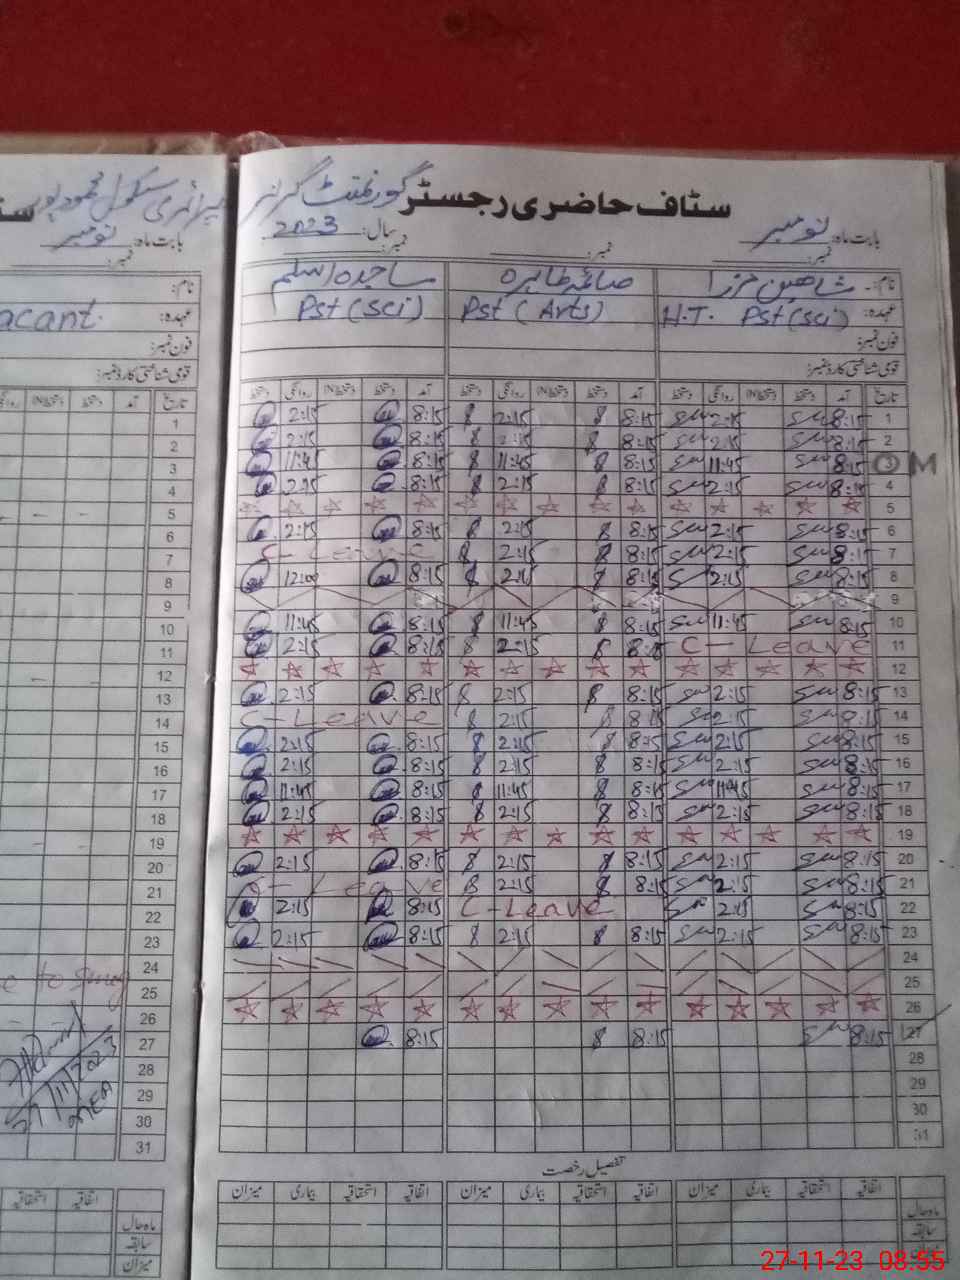 گورنمنٹ گرلز پرائمری سکول محمود پور
سٹاف حاضری رجسٹر
بابت ماہ: نومبر سال: 2023
نمبر: نمبر: نمبر:
نام: شاھین مرزا صائمہ طاہرہ ساجدہ اسلم
عہدہ: H.T. Pst (sci) Pst (Arts) Pst (sci)
فون نمبر:
قومی شناختی کارڈ نمبر:
تاریخ آمد دستخط دستخط(IN) روانگی دستخط آمد دستخط دستخط(IN) روانگی دستخط آمد دستخط دستخط(IN) روانگی دستخط
1 8:15 2:15 8:15 2:15 8:15 2:15
2 8:15 2:15 8:15 2:15 8:15 2:15
3 8:15 11:45 8:15 11:45 8:15 11:45
OM
4 8:15 2:15 8:15 2:15 8:15 2:15
5
6 8:15 2:15 8:15 2:15 8:15 2:15
7 8:15 2:15 8:15 2:15 C-Leave
8 8:15 2:15 8:15 2:15 8:15 12:00
9
10 8:15 11:45 8:15 11:45 8:15 11:45
11 C-Leave 8:15 2:15 8:15 2:15
12
13 8:15 2:15 8:15 2:15 8:15 2:15
14 8:15 2:15 8:15 2:15 C-Leave
15 8:15 2:15 8:15 2:15 8:15 2:15
16 8:15 2:15 8:15 2:15 8:15 2:15
17 8:15 11:45 8:15 11:45 8:15 11:45
18 8:15 2:15 8:15 2:15 8:15 2:15
19
20 8:15 2:15 8:15 2:15 8:15 2:15
21 8:15 2:15 8:15 2:15 Leave
22 8:15 2:15 C-Leave 8:15 2:15
23 8:15 2:15 8:15 2:15 8:15 2:15
24
25
26
27 8:15 8:15 8:15
28
29
30
31
تفصیل رخصت
اتفاقیہ استحقاقیہ بیماری میزان اتفاقیہ استحقاقیہ بیماری میزان اتفاقیہ استحقاقیہ بیماری میزان
ماہ حال
سابقہ
میزان
بابت ماہ: نومبر
نمبر:
نام:
عہدہ: acant.
فون نمبر:
قومی شناختی کارڈ نمبر:
تاریخ آمد دستخط دستخط(IN) روانگی
1
2
3
4
5
6
7
8
9
10
11
12
13
14
15
16
17
18
19
20
21
22
23
24
e to smog
25
26
27
28
29
MEA
30
31
اتفاقیہ استحقاقیہ
ماہ حال
سابقہ
میزان
27-11-23 08:55